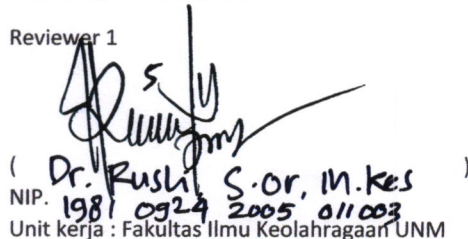 Reviewer 1
( Dr. Rusli, S.or, M.kes )
NIP. 1981 0924 2005 011003
Unit kerja : Fakultas Ilmu Keolahragaan UNM